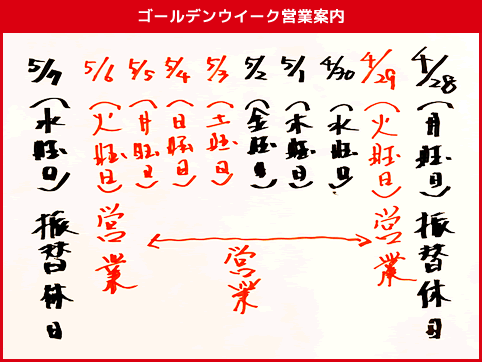 ゴールデンウイーク営業案内
4/28(月曜日)振替休日
4/29(火曜日)営業
4/30(水曜日)
5/1(木曜日)
5/2(金曜日)
営業
5/3(土曜日)
5/4(日曜日)
5/5(月曜日)
5/6(火曜日)営業
5/7(水曜日)振替休日